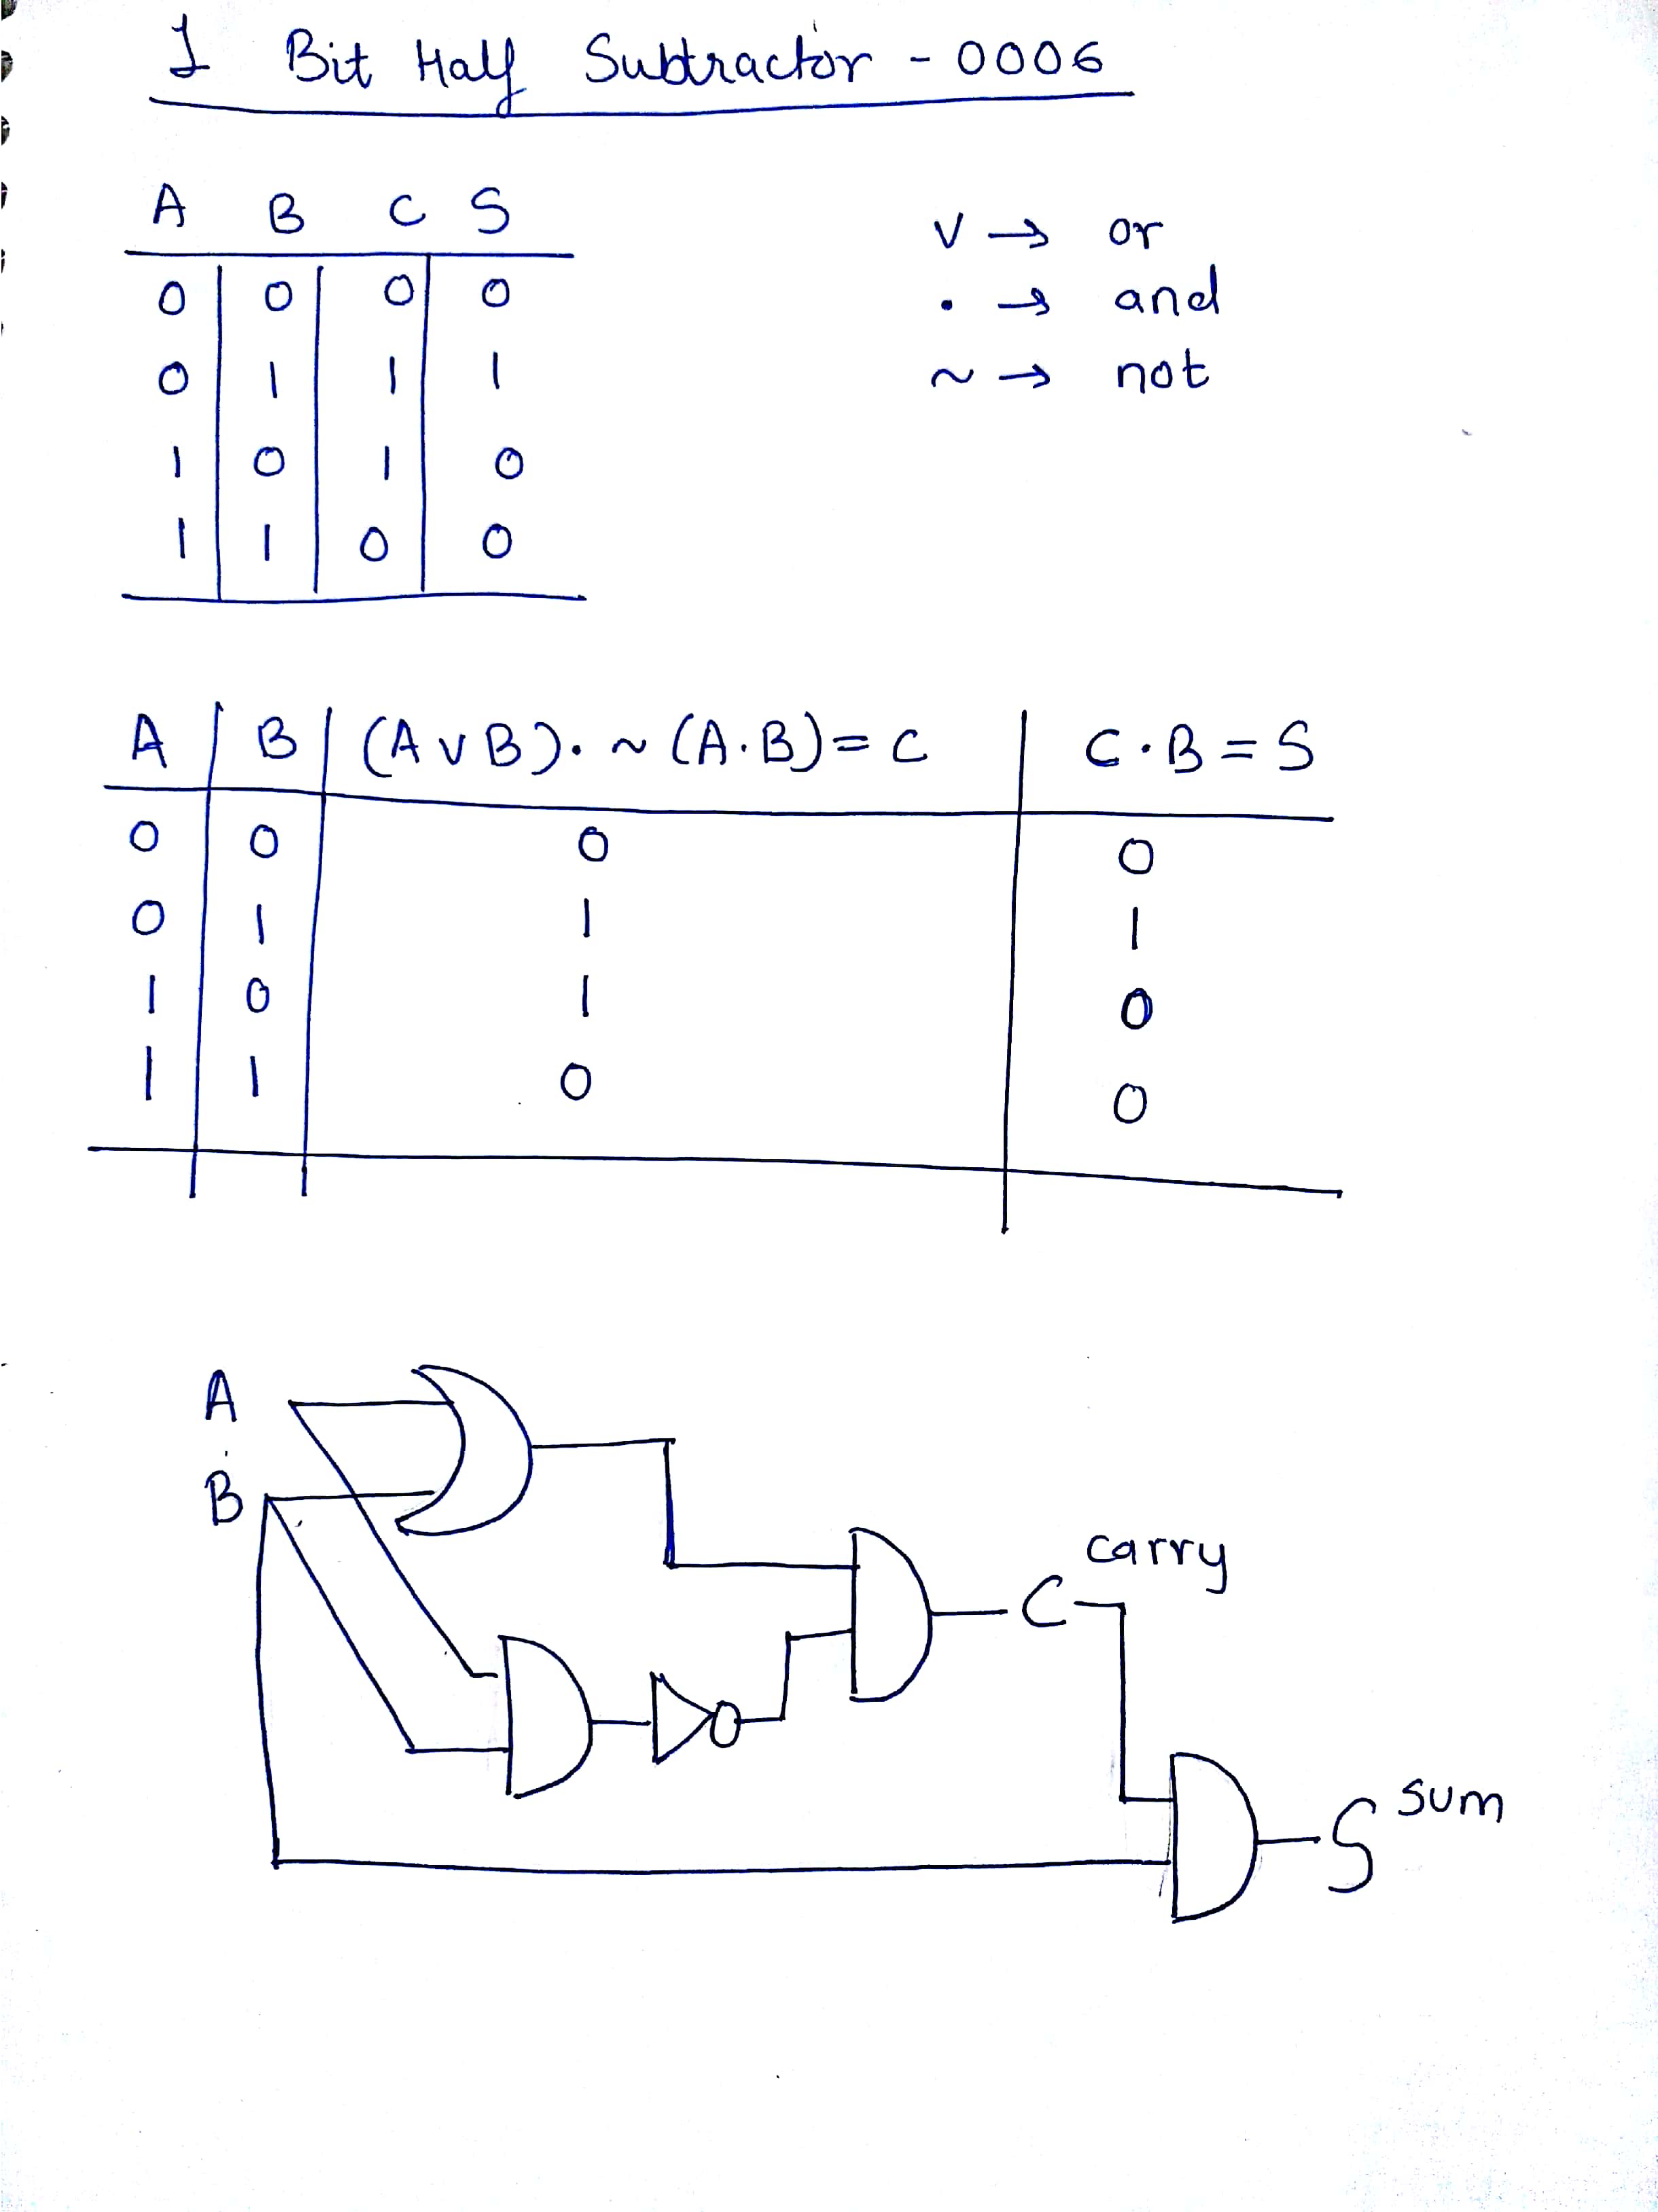 1 Bit Half Subtractor - 0006
A B C S
0 0 0 0
0 1 1 1
1 0 1 0
1 1 0 0
V → or
• → and
~ → not
A B (A V B) . ~ (A . B) = C C . B = S
0 0 0 0
0 1 1 1
1 0 1 0
1 1 0 0
A
B
C carry
S sum